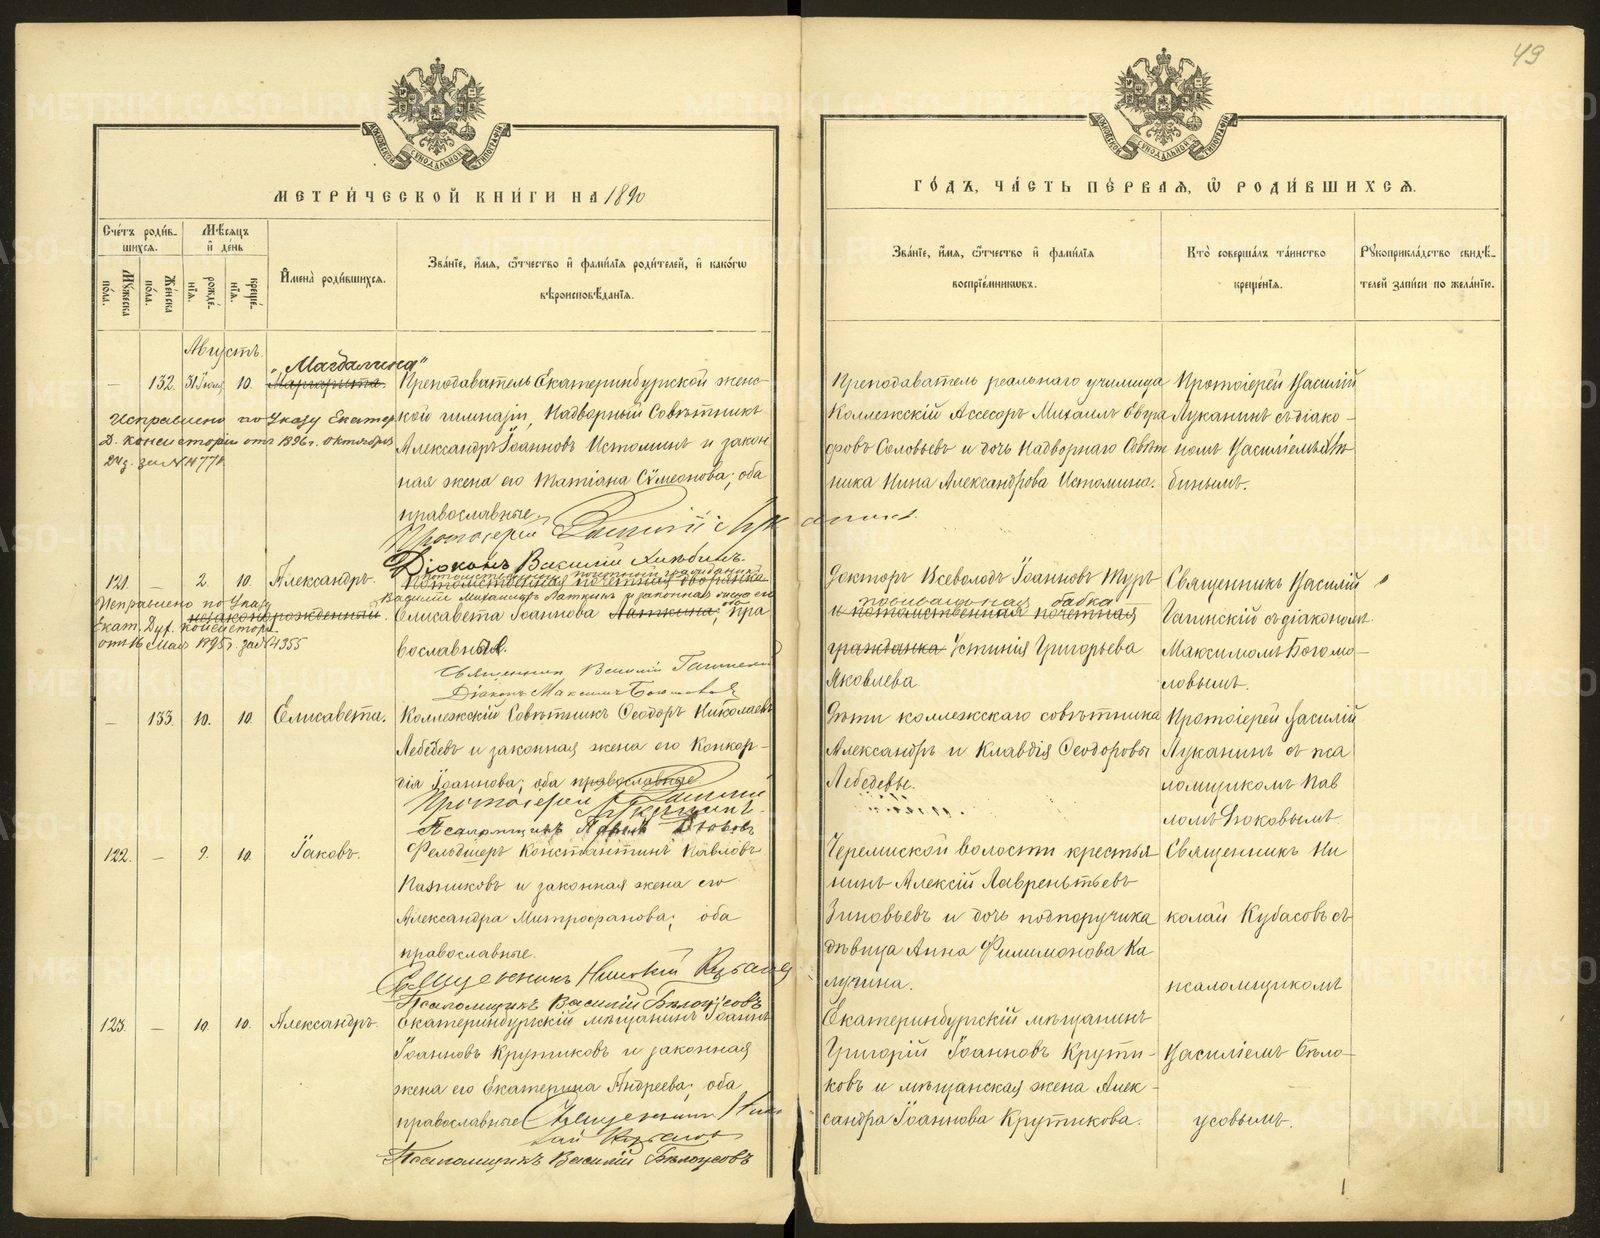 49
МЕТРИ́ЧЕСКОЙ КНИ́ГИ НА 1890
ГО́ДЪ, ЧА́СТЬ ПЕ́РВАѦ, Ѽ РОДИ́ВШИХСѦ.
Сче́тъ роди́в-
шихсѧ.
Мѣ́сѧцъ
и҆ день
Мꙋ́жеска
по́ла.
Же́нска
по́ла.
рожде́-
нїѧ.
креще́-
нїѧ.
И҆мена̀ роди́вшихсѧ.
Зва́нїе, и҆́мѧ, ѻ҆́тчество и҆ фами́лїѧ роди́телей, и҆ како́гѡ
вѣроисповѣ́данїѧ.
Зва́нїе, и҆́мѧ, ѻ҆́тчество и҆ фами́лїѧ
воспрїе́мникѡвъ.
Кто̀ соверша́лъ та́инство
креще́нїѧ.
Рꙋкоприкла́дство свидѣ́-
телей за́писи по жела́нїю.
Августъ.
— 132. 31 Іюля 10. „Магдалина"
Маргарита.
Исправлено по Указу Екатер.
Д. консисторіи отъ 1896 г. октября
24 д. за №
Преподаватель Екатеринбургской женс-
кой гимназіи, Надворный Совѣтникъ
Александръ Іоанновъ Истоминъ и закон
ная жена его Татіана Сѵмеонова; оба
православные.
Протоіерей Василій Луканинъ.
Діаконъ Василій Хлѣбинъ.
Преподаватель реальнаго училища
Коллежскій Ассесоръ Михаилъ Евгра
фовъ Соловьевъ и дочь Надворнаго Совѣт
ника Нина Александрова Истомина.
Протоіерей Василій
Луканинъ съ діако-
номъ Василіемъ Хлѣ-
бинымъ.
121. — 2. 10. Александръ.
незаконнорожденный.
Исправлено по Указу
Екат. Дух. консисторіи
отъ 16 Мая 1895 г. за № 4355
Елисавета Іоаннова Латкина; пра
вославные.
Священникъ Василій Гагинскій
Діаконъ Максимъ Богомоловъ
Докторъ Всеволодъ Іоанновъ Турт
повивальная бабка
и потомственная почетная
гражданка Устинія Григорьева
Яковлева
Священникъ Василій
Гагинскій съ діакономъ
Максимомъ Богомо-
ловымъ.
— 133. 10. 10. Елисавета.
Коллежскій Совѣтникъ Ѳеодоръ Николаевъ
Лебедевъ и законная жена его Конкор-
дія Іоаннова; оба православные
Протоіерей Василій
Луканинъ.
Псаломщикъ Павелъ
Дѣти коллежскаго совѣтника
Александръ и Клавдія Ѳеодоровы
Лебедевы.
Протоіерей Василій
Луканинъ съ пса
ломщикомъ Пав
ломъ
122. — 9. 10. Іаковъ.
Фельдшеръ Константинъ Павловъ
Пазниковъ и законная жена его
Александра Митрофанова; оба
православные.
Священникъ Николай Кубасовъ
Псаломщикъ Василій Бѣлоусовъ
Черемиской волости крестья
нинъ Алексій Лаврентьевъ
Зиновьевъ и дочь подпоручика
дѣвица Анна Филимонова Ка
лугина.
Священникъ Ни
колай Кубасовъ съ
псаломщикомъ
123. — 10. 10. Александръ.
Екатеринбургскій мѣщанинъ Іоаннъ
Іоанновъ Крутиковъ и законная
жена его Екатерина Андреева; оба
православные Священникъ Нико
лай Кубасовъ
Псаломщикъ Василій Бѣлоусовъ
Екатеринбургскій мѣщанинъ
Григорій Іоанновъ Крути-
ковъ и мѣщанская жена Алек-
сандра Іоаннова Крутикова.
Василіемъ Бѣло-
усовымъ.